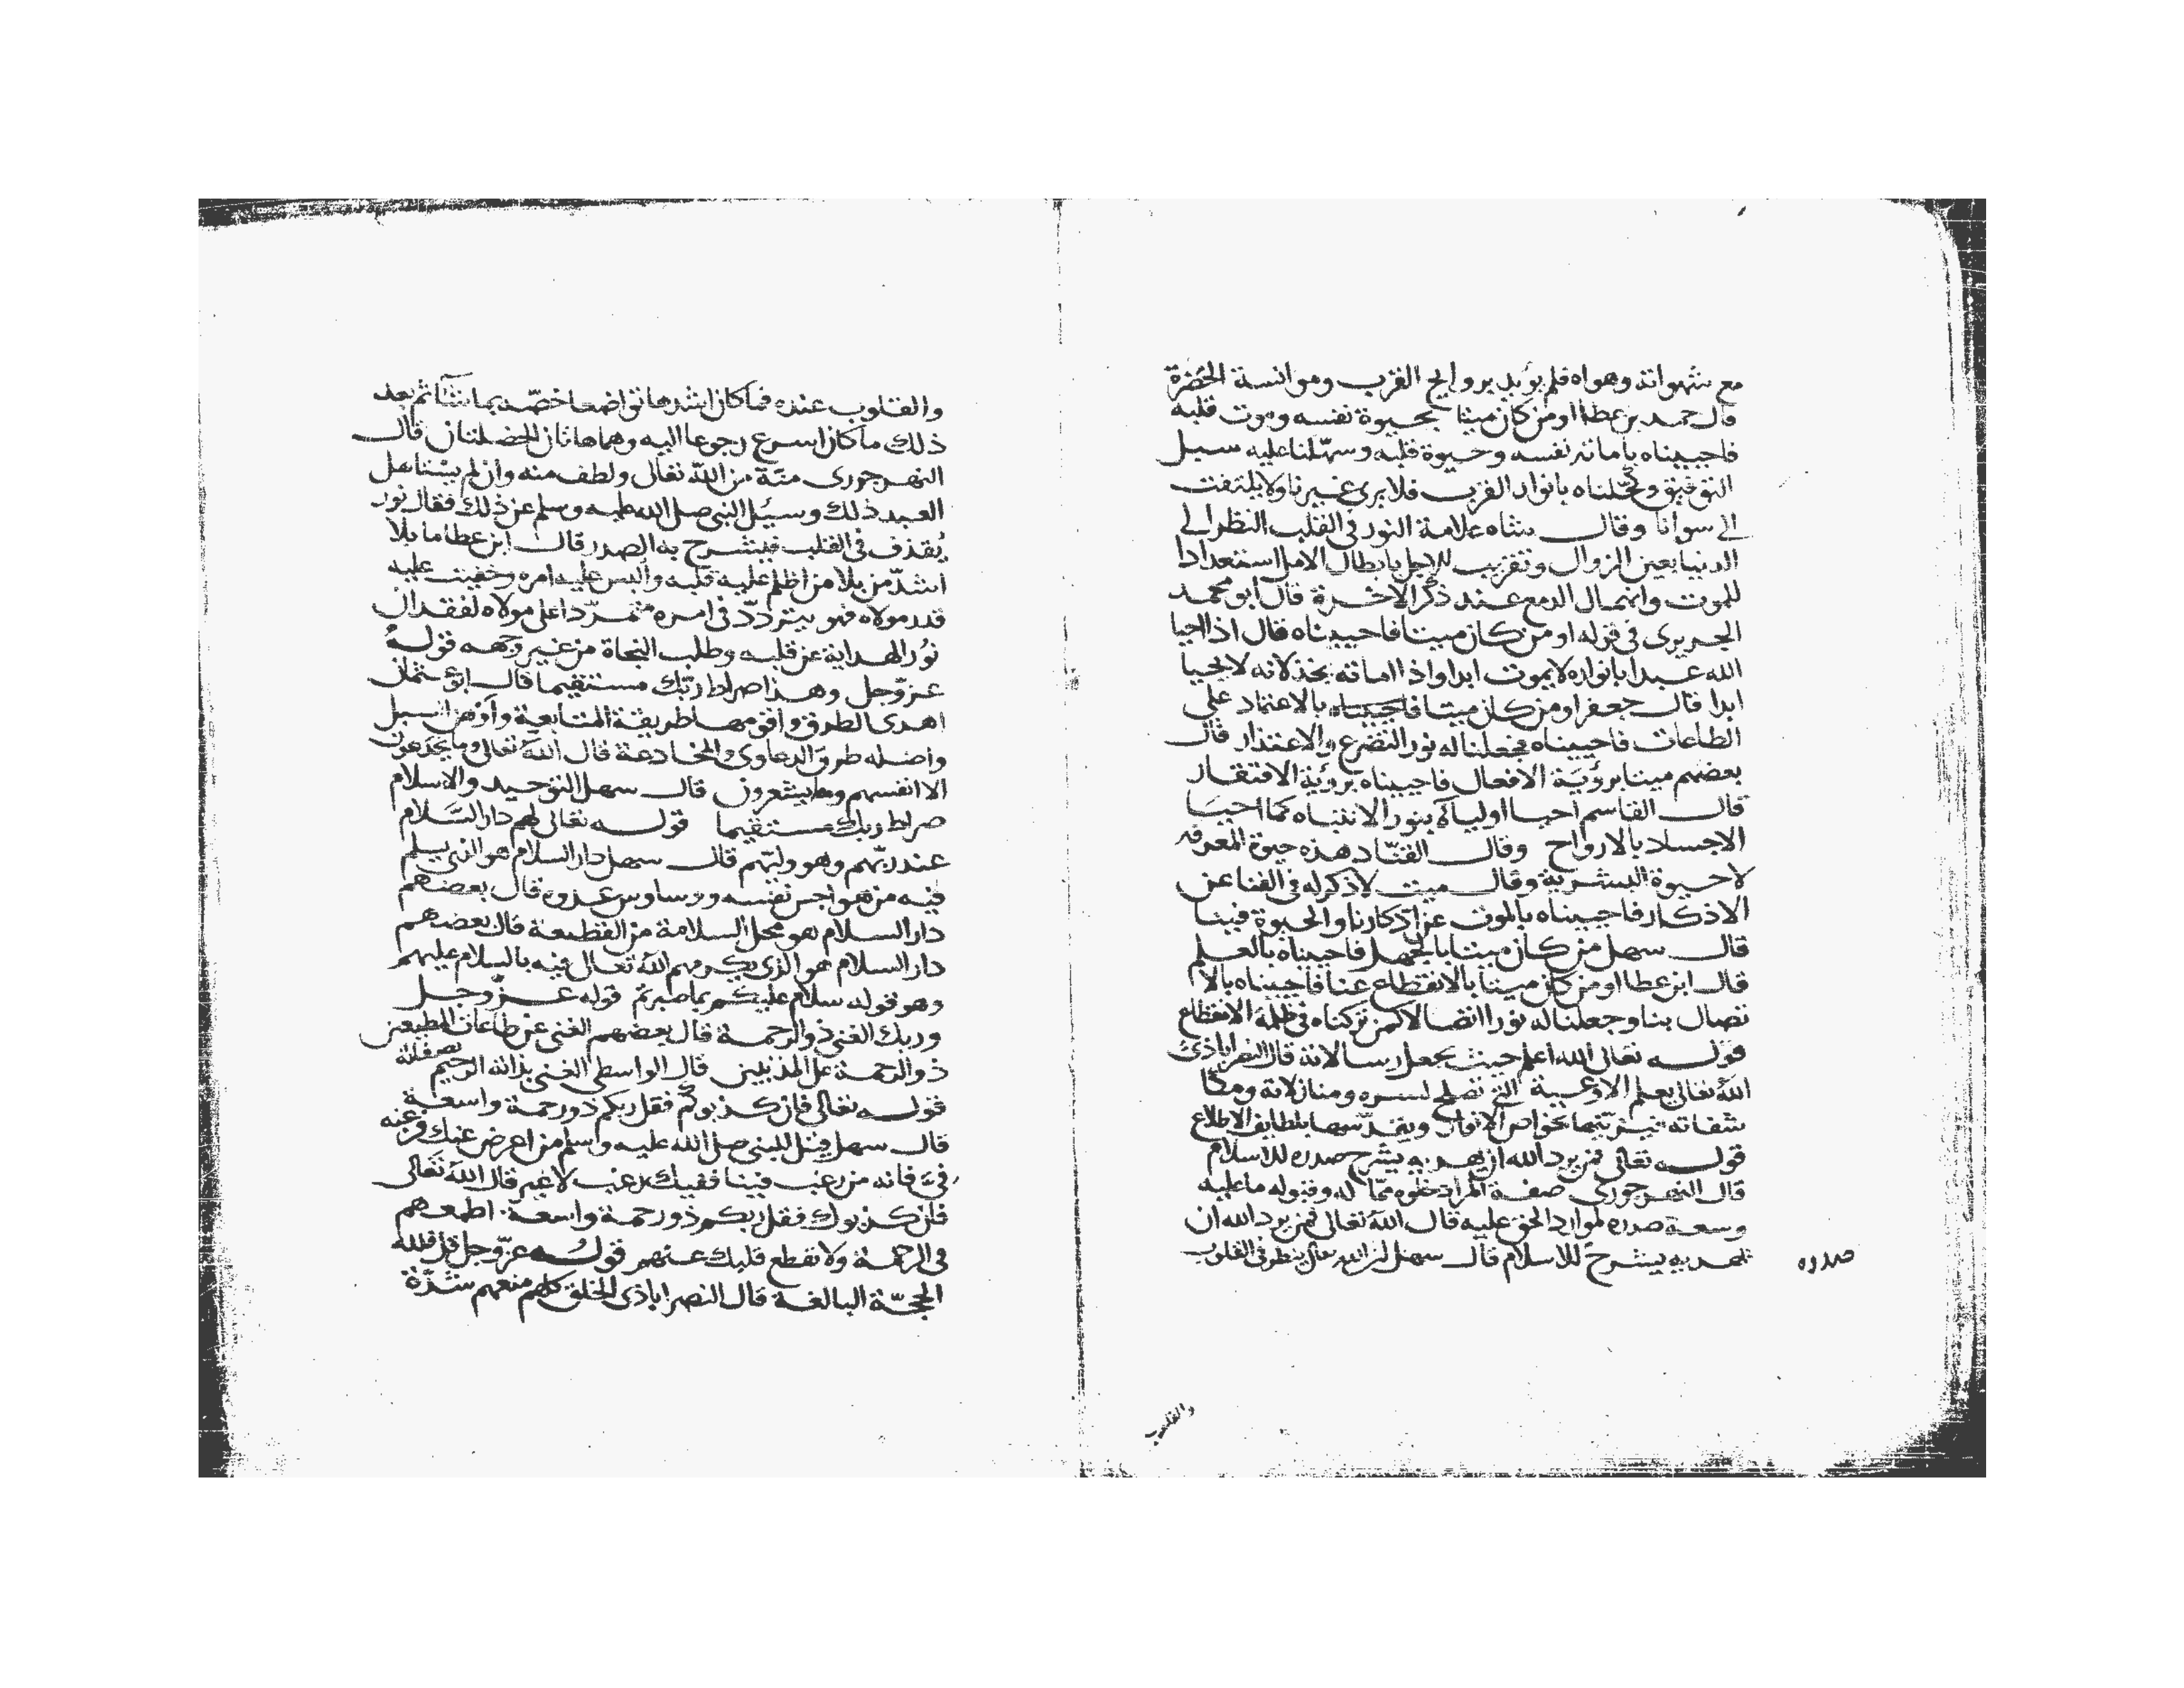 مع شهواته وهواه فلم يؤيد بروايح القرب وموانسة الحضرة
قال حمد بن عطا اومن كان ميتا بحيوة نفسه وموت قلبه
فاحييناه باماتة نفسه وحيوة قلبه وسهلنا عليه سبيل
التوفيق وكحلناه بانوار القرب فلا يرى غيرنا ولا يلتفت
الى سوانا وقال شاه علامة النور فى القلب النظر الى
الدنيا بعين الزوال وتقريب الاجل بابطال الامل استعدادا
للموت وانهمال الدمع عند ذكر الاخرة قال ابو محمد
الجريرى فى قوله او من كان ميتا فاحييناه قال اذا احيا
الله عبدا بانواره لا يموت ابدا واذا اماته بخذلانه لا يحيا
ابدا قال جعفر اومن كان ميتا فاحييناه بالاعتماد على
الطاعات فاحييناه فجعلنا له نور التضرع والاعتذار قال
بعضهم ميتا برؤية الافعال فاحييناه برؤية الافتقار
قال القاسم احيا اولياه بنور الانتباه كما احيا
الاجساد بالارواح وقال القناد هذه حيوة المعرفة
لا حيوة البشرية وقال ميت لا ذكر له فى الفنا عن
الاذكار فاحييناه بالموت عن اذكارنا والحيوة فينا
قال سهل من كان ميتا بالجهل فاحييناه بالعلم
قال ابن عطا اومن كان ميتا بالانقطاع عنا فاحييناه بالا
تصال بنا وجعلنا له نورا اتصالا كمن تركناه فى ظلمة الانقطاع
قوله تعالى الله اعلم حيث يجعل رسالاته قال النصراباذى
الله تعالى يعلم الاوعية التى تصلح لسره ومنازلاته ومكا
شفاته فيزينها بخواص الانوار ويقدسها بلطايف الاطلاع
قوله تعالى فمن يرد الله ان يهديه يشرح صدره للاسلام
قال النهرجورى صفة المراد خلوه مما له وقبوله ما عليه
وسعة صدره لموارد الحق عليه قال الله تعالى فمن يرد الله ان
يهديه يشرح للاسلام قال سهل ان الله تعالى ينظر فى القلوب
صدره
والقلوب
والقلوب عنده فما كان اشدها تواضعا خصه بما شاء ثم بعد
ذلك ما كان اسرع رجوعا اليه وهما هاتان الخصلتان قال
النهرجورى منة من الله تعالى ولطف منه وان لم يشا عل
العبد ذلك وسئل النبى صلى الله عليه وسلم عن ذلك فقال نور
يقذف فى القلب فينشرح به الصدر قال ابن عطا ما بلا
اشد من بلا من اظلم عليه قلبه والبس عليه امره وخفيت عليه
قدر مولاه فهو يتردد فى امره متمردا على مولاه لفقدان
نور الهداية عن قلبه وطلب النجاة من غير وجهه قوله
عز وجل وهذا صراط ربك مستقيما قال ابو عثمان
اهدى الطرق واقومها طريقة المتابعة واوضح السبل
واضله طرق الدعاوى والمخادعة قال الله تعالى وما يخدعون
الا انفسهم وما يشعرون قال سهل التوحيد والاسلام
صراط ربك مستقيما قوله تعالى لهم دار السلام
عند ربهم وهو وليهم قال سهل دار السلام هو الذى يسلم
فيه من هواجس نفسه ووساوس عدوه قال بعضهم
دار السلام هو محل السلامة من القطيعة قال بعضهم
دار السلام هو الذى يكرمهم الله تعالى فيه بالسلام عليهم
وهو قوله سلام عليكم بما صبرتم قوله عز وجل
وربك الغنى ذو الرحمة قال بعضهم الغنى عن طاعات المطيعين
ذو الرحمة على المذنبين قال الواسطى الغنى بذاته الرحيم بصفاته
قوله تعالى فان كذبوكم فقل ربكم ذو رحمة واسعة
قال سهل قيل للنبى صلى الله عليه وسلم من اعرض عنك فرغبه
فى فانه من رغب فينا ففيك رغب لا غير قال الله تعالى
فان كذبوك فقل ربكم ذو رحمة واسعة اطمعهم
فى الرحمة ولا تقطع قلبك عنهم قوله عز وجل قل فلله
الحجة البالغة قال النصراباذى الخلق كلهم منعهم شدة